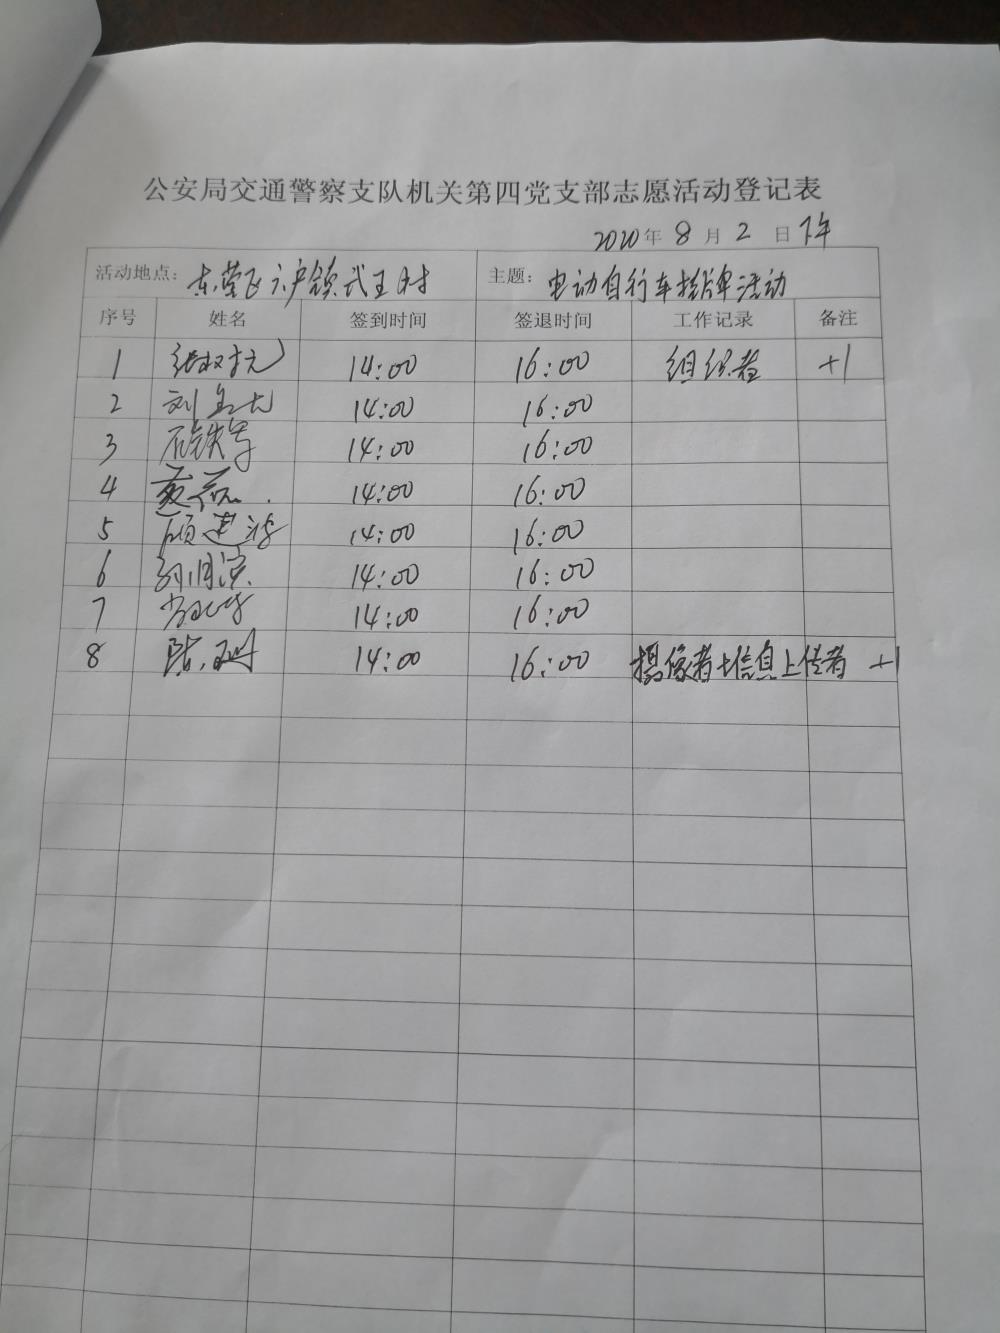 公安局交通警察支队机关第四党支部志愿活动登记表
2020年 8 月 2 日 下午
活动地点: 东营区六户镇武王村 主题: 电动自行车挂牌活动
序号 姓名 签到时间 签退时间 工作记录 备注
1 14:00 16:00 组织者 +1
2 刘 14:00 16:00
3 14:00 16:00
4 14:00 16:00
5 顾建 14:00 16:00
6 14:00 16:00
7 14:00 16:00
8 陈 14:00 16:00 摄像者+信息上传者 +1